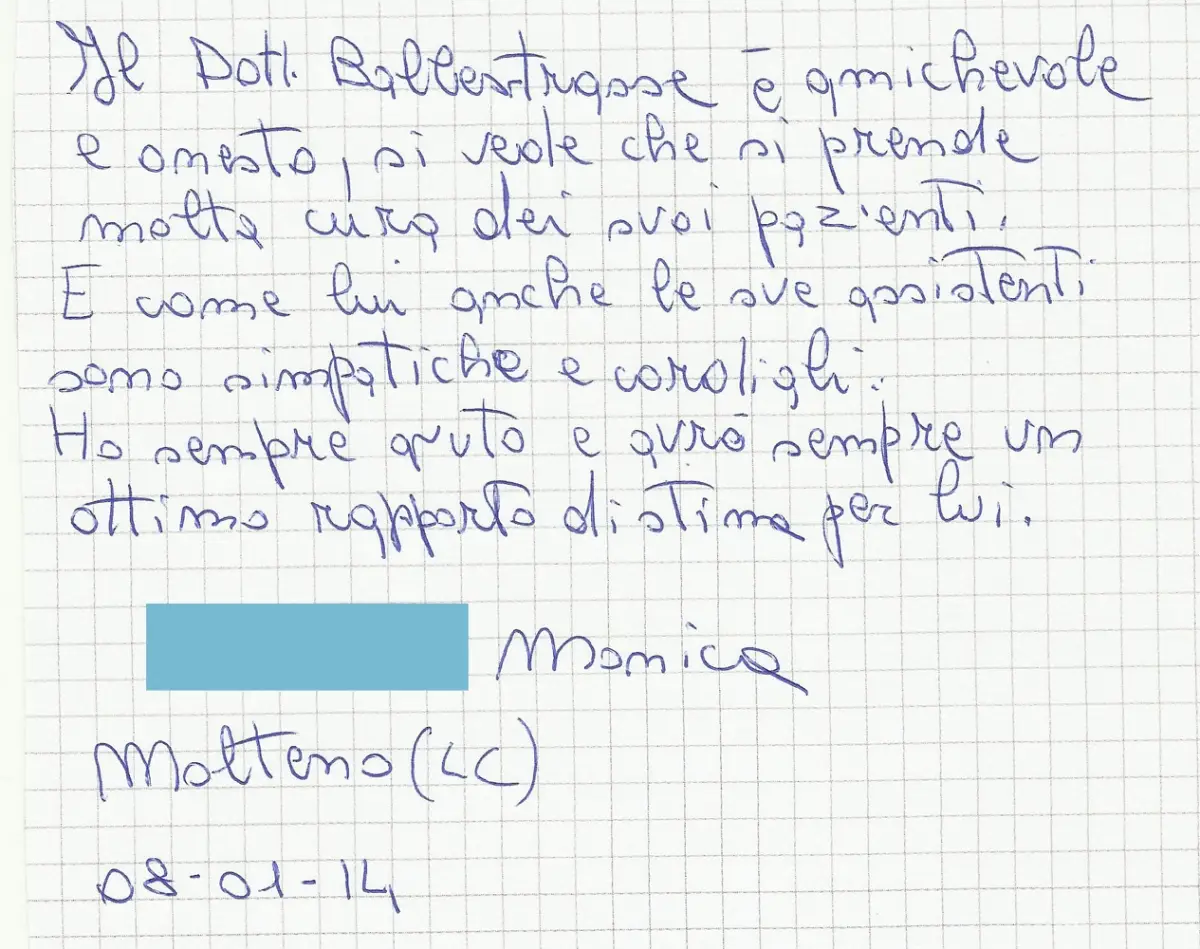 Il Dott. Ballestrasse è amichevole
e onesto, si vede che si prende
molta cura dei suoi pazienti.
E come lui anche le sue assistenti
sono simpatiche e cordiali.
Ho sempre avuto e avrò sempre un
ottimo rapporto di stima per lui.
Monica
Molteno (LC)
08-01-14